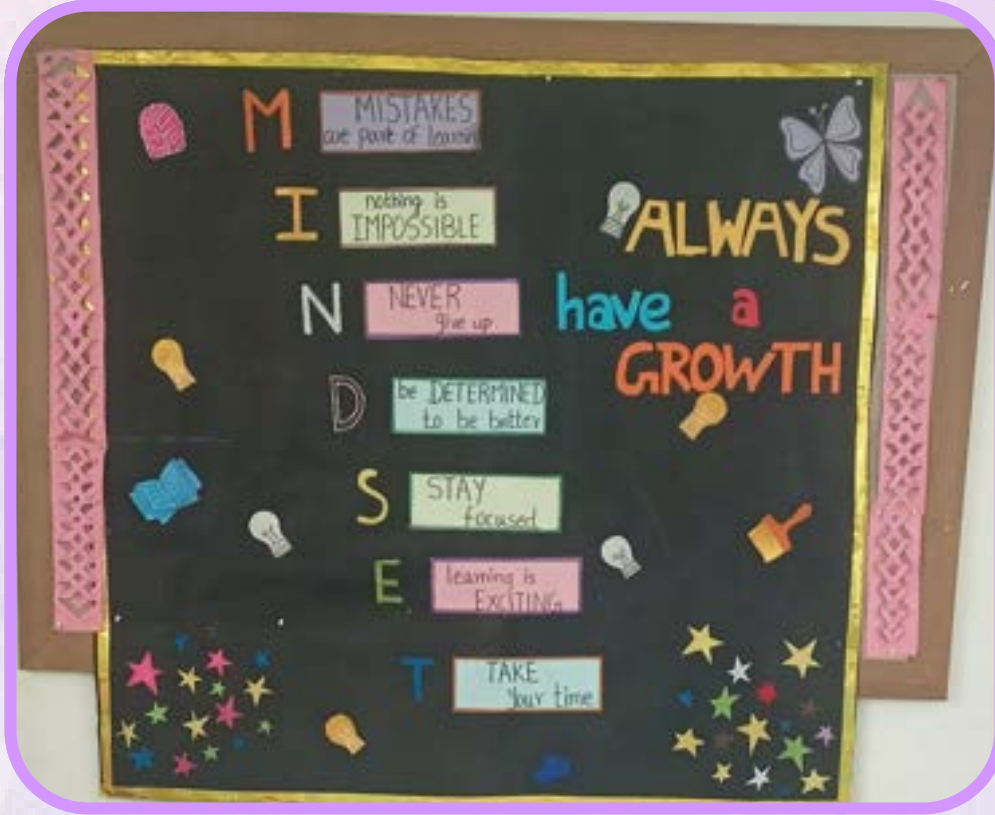 M MISTAKES
are part of learnin
I nothing is
IMPOSSIBLE
N NEVER
give up
D be DETERMINED
to be better
S STAY
focused
E learning is
EXCITING
T TAKE
Your time
ALWAYS
have a
GROWTH